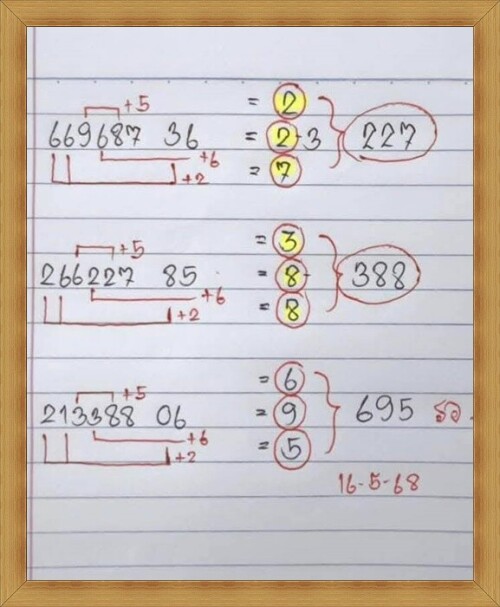 +5 = 2
669687 36 = 2-3 227
+6
+2 = 7
+5 = 3
266227 85 = 8- 388
+6
+2 = 8
+5 = 6
213388 06 = 9 695 รอ.
+6
+2 = 5
16-5-68